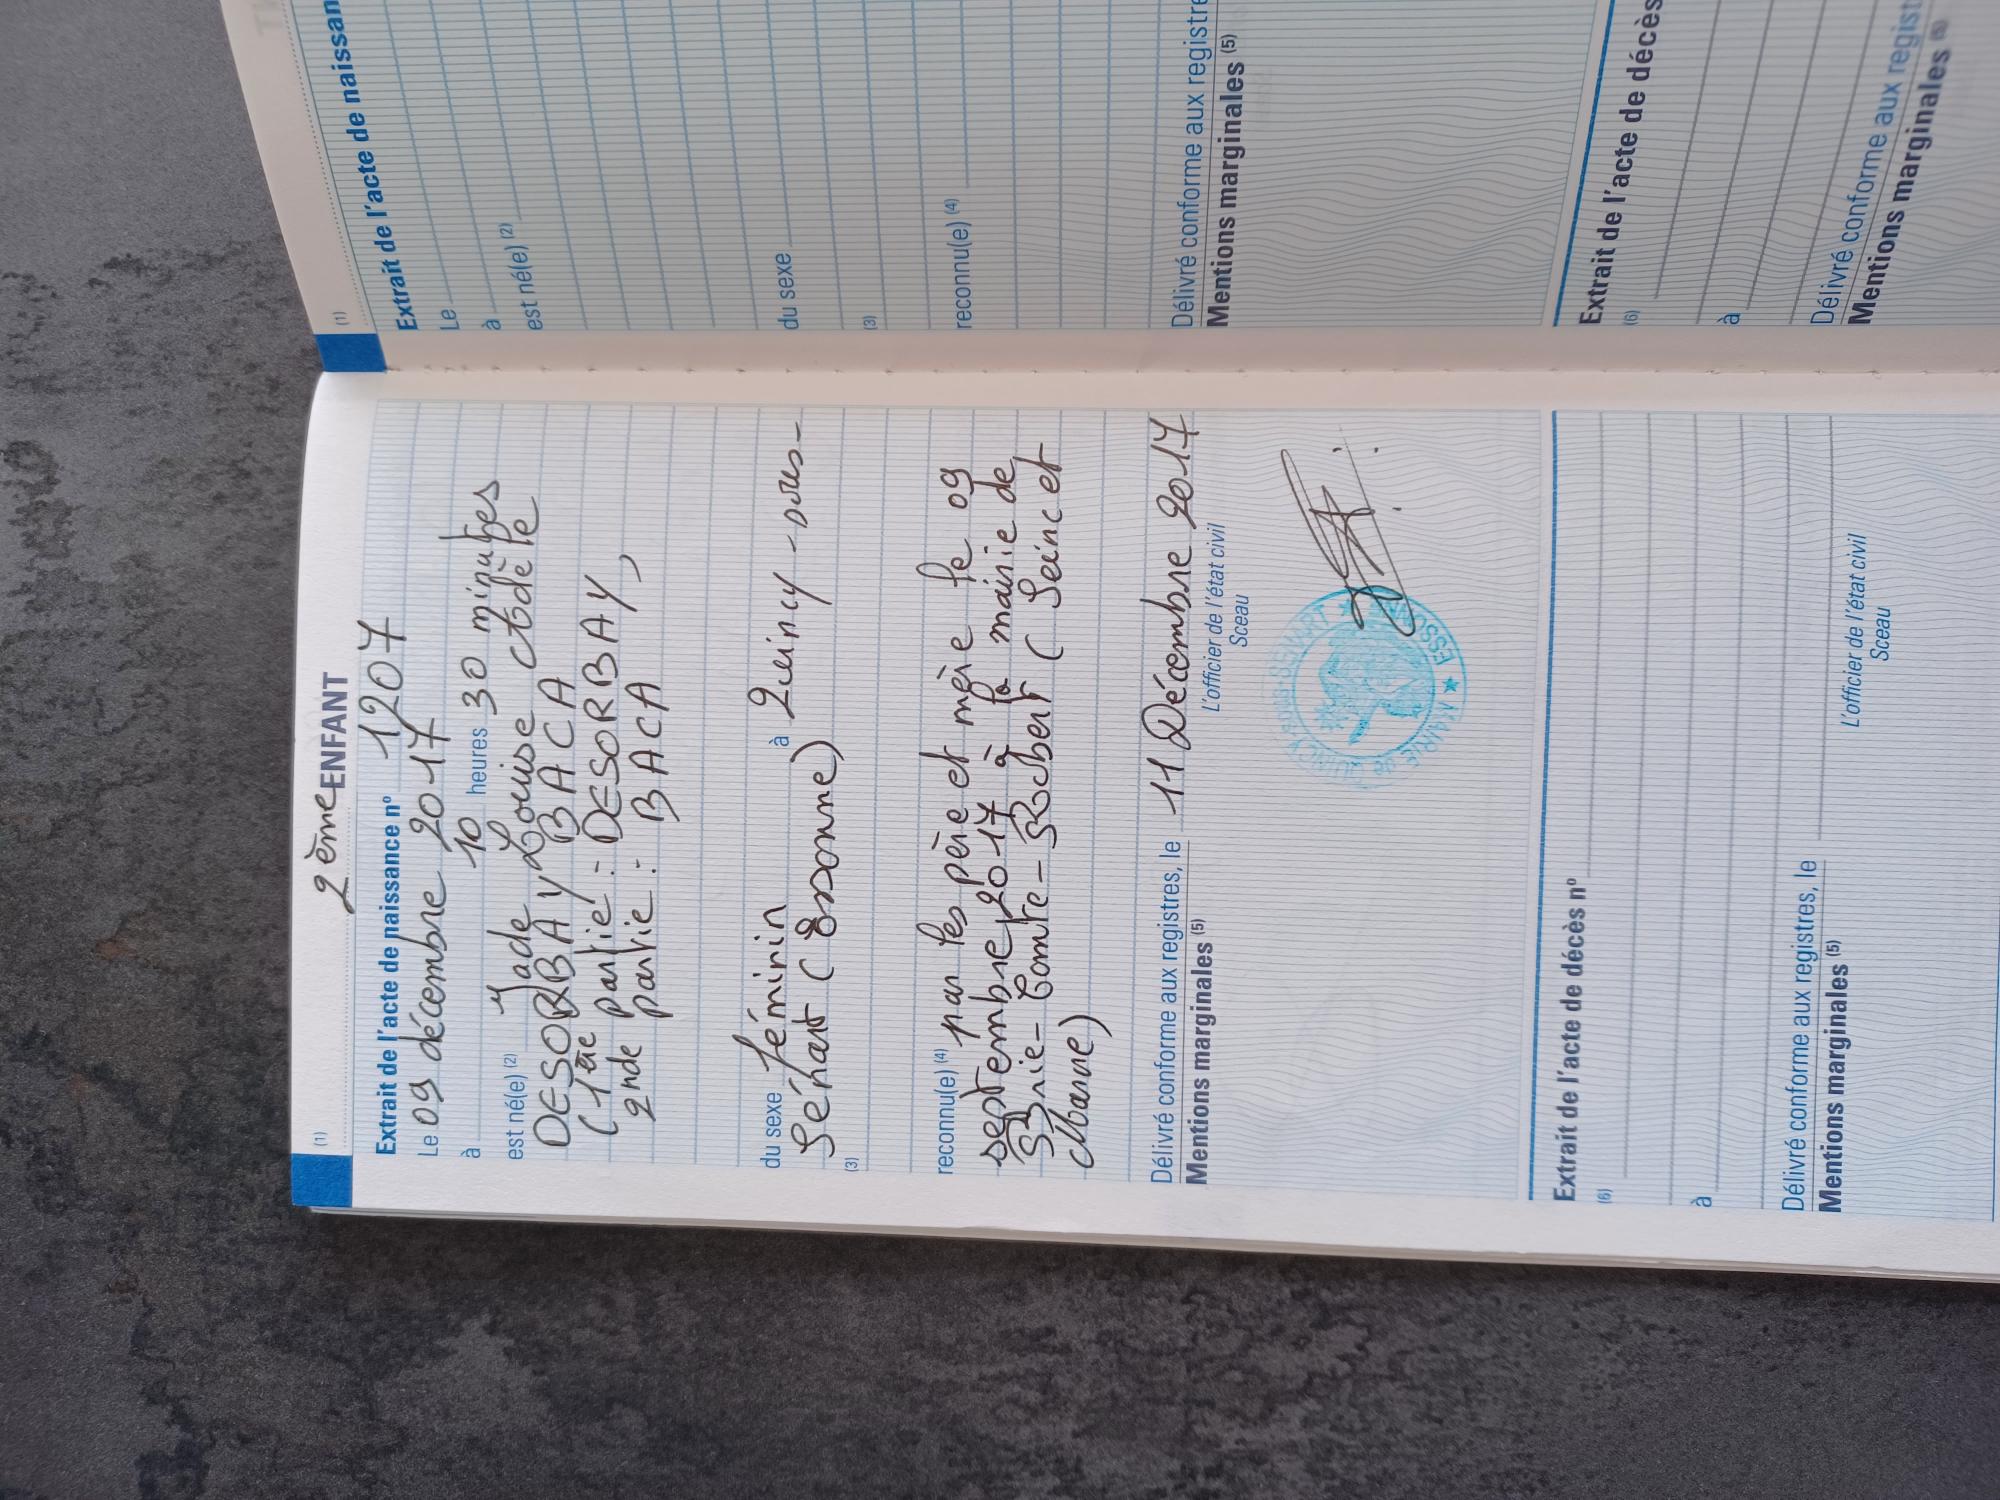 (1) 2ème ENFANT
Extrait de l'acte de naissance nº 1207
Le 09 décembre 2017
à 10 heures 30 minutes
est né(e) (2) Jade Louise Adèle
DESORBAY BACA
(1ère partie : DESORBAY,
2nde partie : BACA
)
du sexe féminin à Quincy-sous-
Sénart (Essonne)
(3)
reconnu(e) (4) par les père et mère le 09
septembre 2017 à la mairie de
Brie-Comte-Robert (Seine et
Marne)
Délivré conforme aux registres, le 11 Décembre 2017
Mentions marginales (5)
L'officier de l'état civil
Sceau
MAIRIE de QUINCY-SOUS-SENART
ESSONNE
Extrait de l'acte de décès nº
(6)
à
Délivré conforme aux registres, le
Mentions marginales (5)
L'officier de l'état civil
Sceau
(1)
Extrait de l'acte de naissan
Le
à
est né(e) (2)
du sexe
(3)
reconnu(e) (4)
Délivré conforme aux registre
Mentions marginales (5)
Extrait de l'acte de décès
(6)
à
Délivré conforme aux regist
Mentions marginales (5)